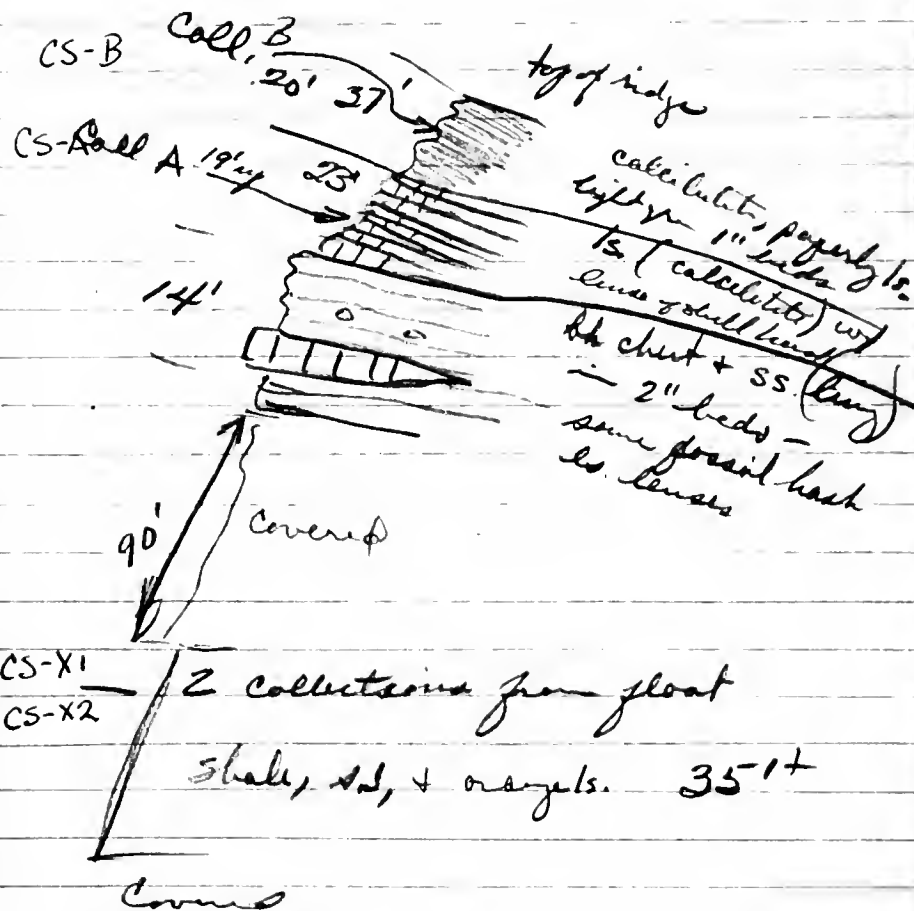 CS-B Coll. B
20' 37'
top of ridge
CS-A Coll A 19' up 23'
calcilutite, papery ls.
light gr 1" beds
ls. (calcilutite) w/
lense of shell hash
14'
blk chert + ss (limy)
in 2" beds -
some fossil hash
ls. lenses
90'
Covered
CS-X1
CS-X2
2 collections from float
shale, sd, + orange ls. 35'+
Covered